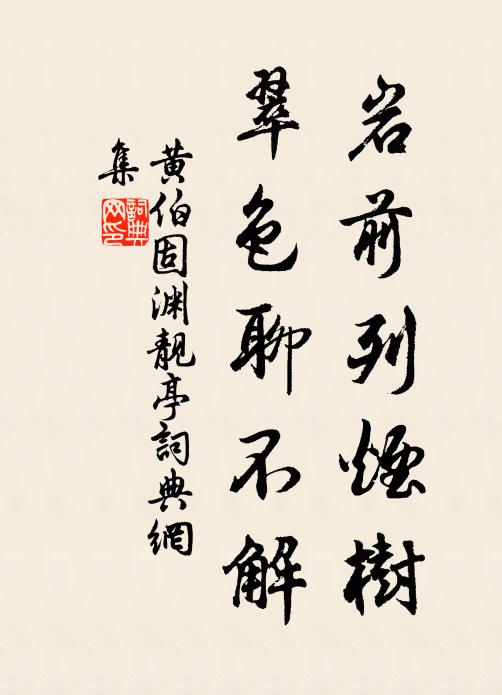 岩前列煙樹
翠色聊不解
黃伯固淵靚亭詞典網
集
詞典網印